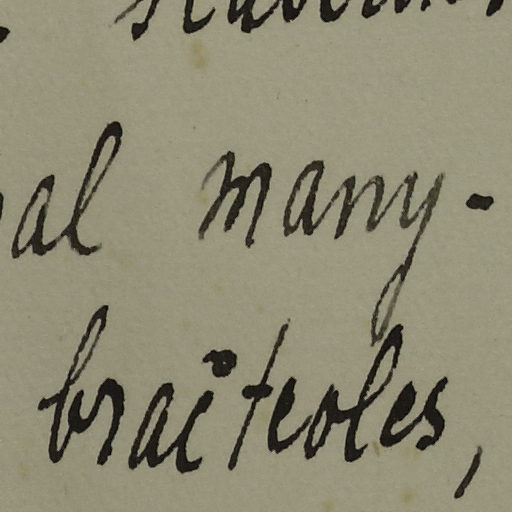 al many-
bracteoles,